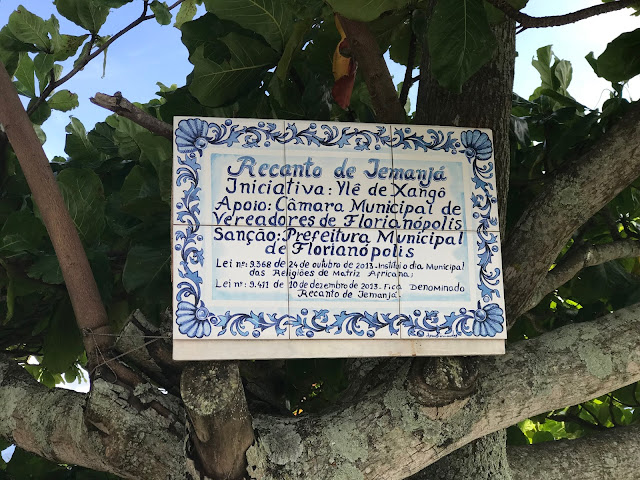 Recanto de Iemanjá
Iniciativa: Ylê de Xangô
Apoio: Câmara Municipal de
Vereadores de Florianópolis
Sanção: Prefeitura Municipal
de Florianópolis
Lei nº: 9.368 de 24 de outubro de 2013-Institui o dia Municipal
das Religiões de Matriz Africana;
Lei nº: 9.411 de 10 de dezembro de 2013. Fica Denominado
Recanto de Iemanjá.